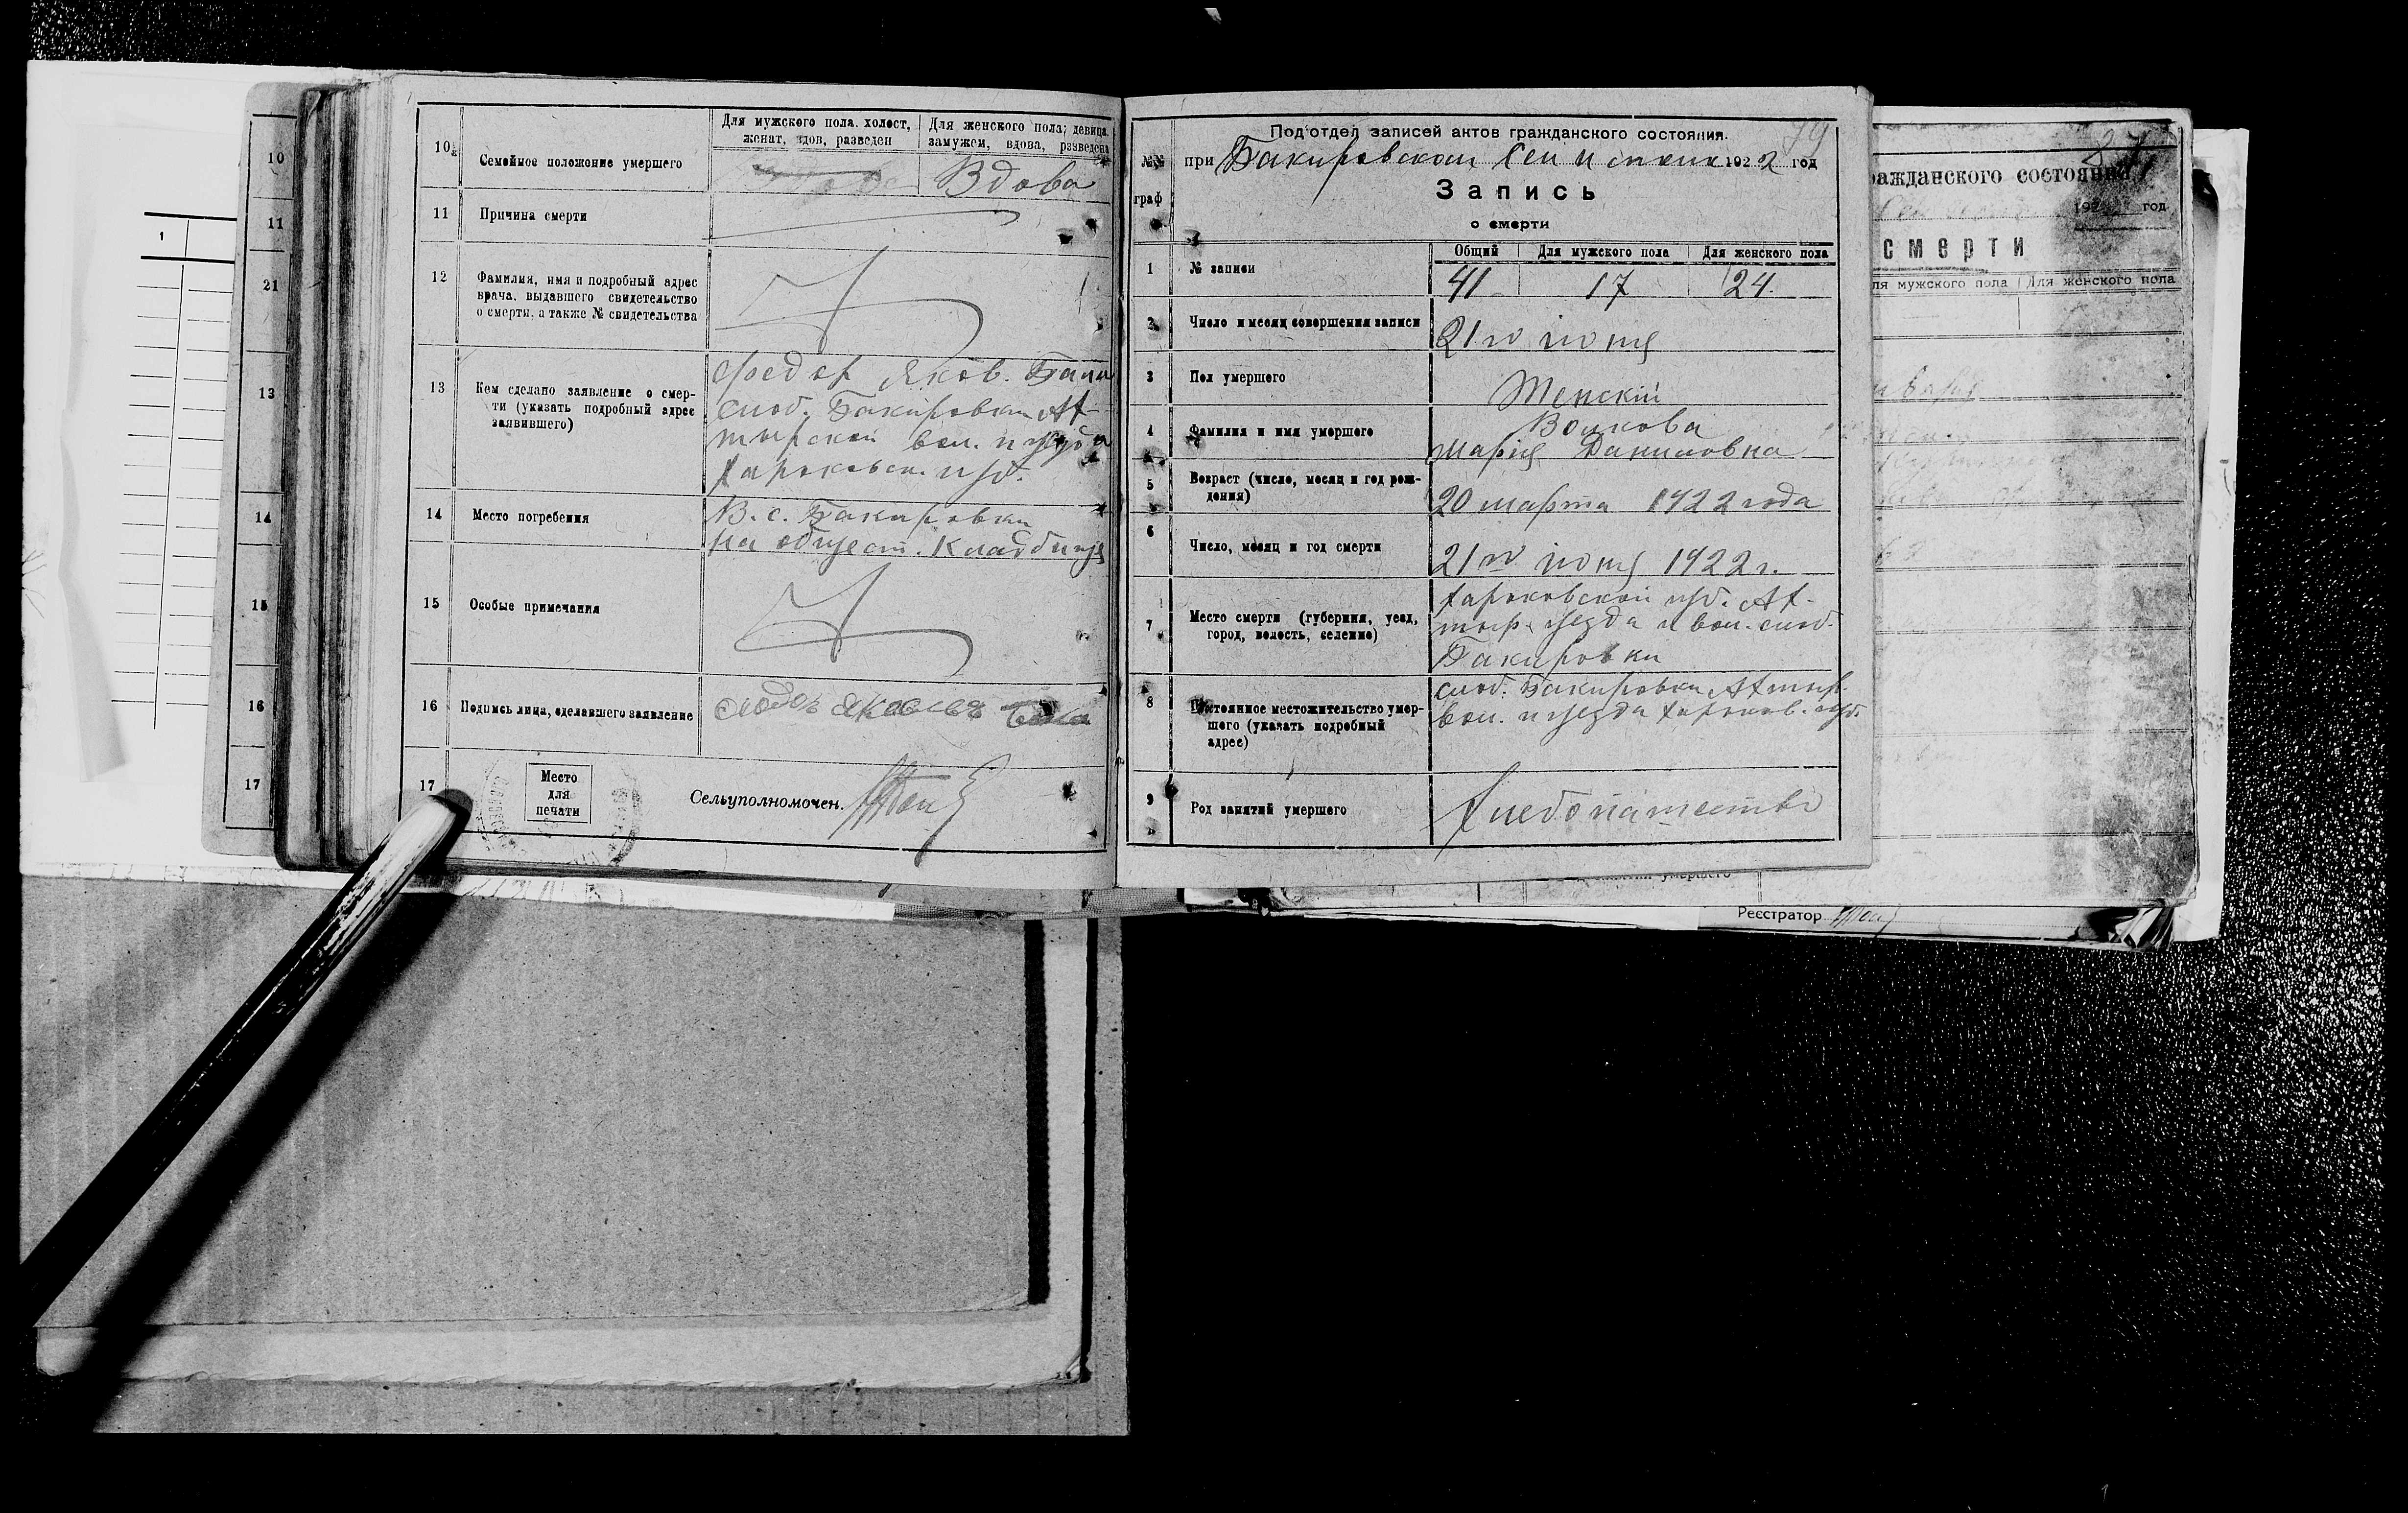 10
11
21
13
14
15
16
17
1
10
Семейное положение умершего
Для мужского пола. холост, женат, вдов, разведен
Для женского пола; девица, замужем, вдова, разведена
Вдова
11
Причина смерти
12
Фамилия, имя и подробный адрес
врача, выдавшего свидетельство
о смерти, а также № свидетельства
13
Кем сделано заявление о смер-
ти (указать подробный адрес
заявившего)
Федор Яков.
слоб. Бакировки Ах-
тырской вол. и уезда
Харьковск. губ.
14
Место погребения
В. с. Бакировки
на общест. Кладбище
15
Особые примечания
16
Подпись лица, сделавшего заявление
17
Место
для
печати
Сельуполномочен.
79
Под'отдел записей актов гражданского состояния.
№№
граф
при Бакировском 1922 год
Запись
о смерти
Общий
Для мужского пола
Для женского пола
1
№ записи
41
17
24.
2
Число и месяц совершения записи
21го июня
3
Пол умершего
Женскій
4
Фамилия и имя умершего
Волкова
Марія Даниловна
5
Возраст (число, месяц и год рож-
дения)
20 марта 1922 года
6
Число, месяц и год смерти
21го июня 1922 г.
7
Место смерти (губерния, уезд,
город, волость, селение)
Харьковской губ. Ах-
тыр. уезда и вол. слоб.
Бакировки
8
Постоянное местожительство умер-
шего (указать подробный
адрес)
слоб. Бакировки Ахтыр.
вол. и уезда Харьков. губ.
9
Род занятий умершего
Хлебопашество
87
ражданского состояния
192 год
смерти
ля мужского пола
Для женского пола
Реєстратор